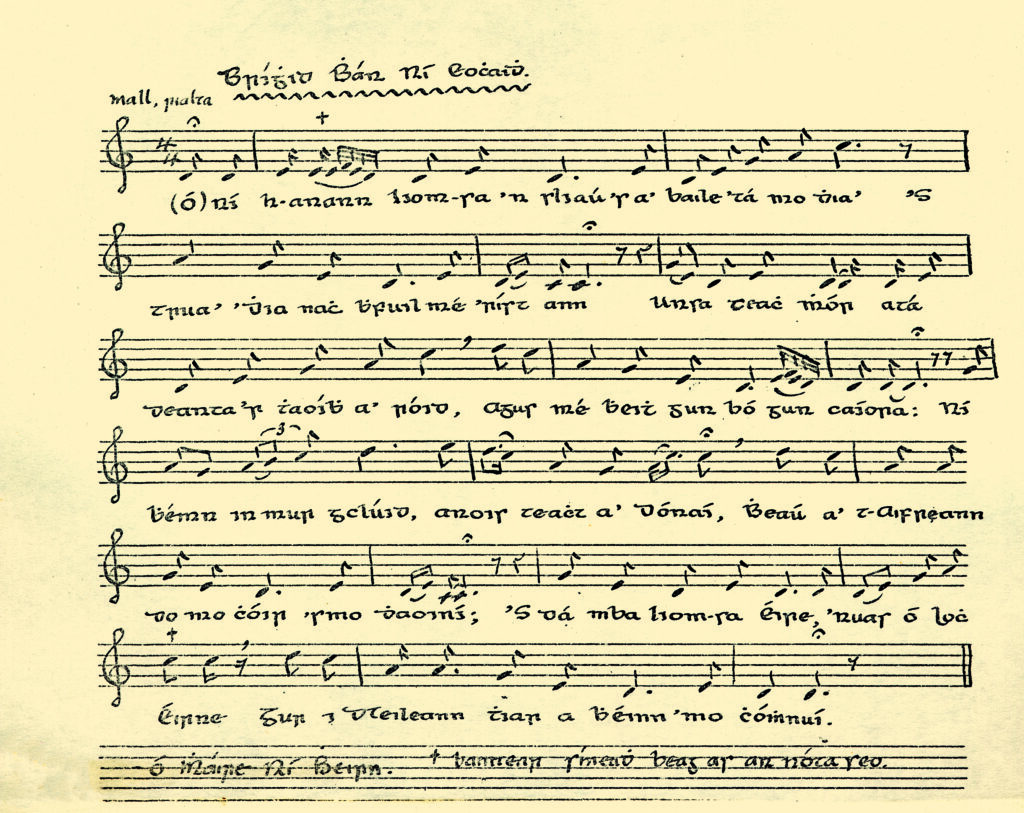 Bríġid Ḃán Ní Eoċaiḋ.
Mall, rialta
(ó) ní h-anann liom-sa 'n sliaú 's a' baile 'tá mo ḋia' 'S
trua' 'Ḋia naċ ḃfuil mé 'ríst ann Unsa teaċ ṁór atá
deanta 's taoiḃ a' róid, Agus mé ḃeiṫ gun bó gun caíora: Ní
ḃéinn in mur gclúid, anois teaċt a' Dónaí, Ḃeaú a' t-Aifreann
do mo ċóir 'smo ḋaoiní; 'S dá mba liom-sa Éire, 'nuas ó Loċ
Éirne Gur i dTeileann ṫiar a ḃéinn 'mo ċóṁnuí.
ó Ṁáire Ní Ḃeirn. † baintear síneaḋ beag as an nóta seo.